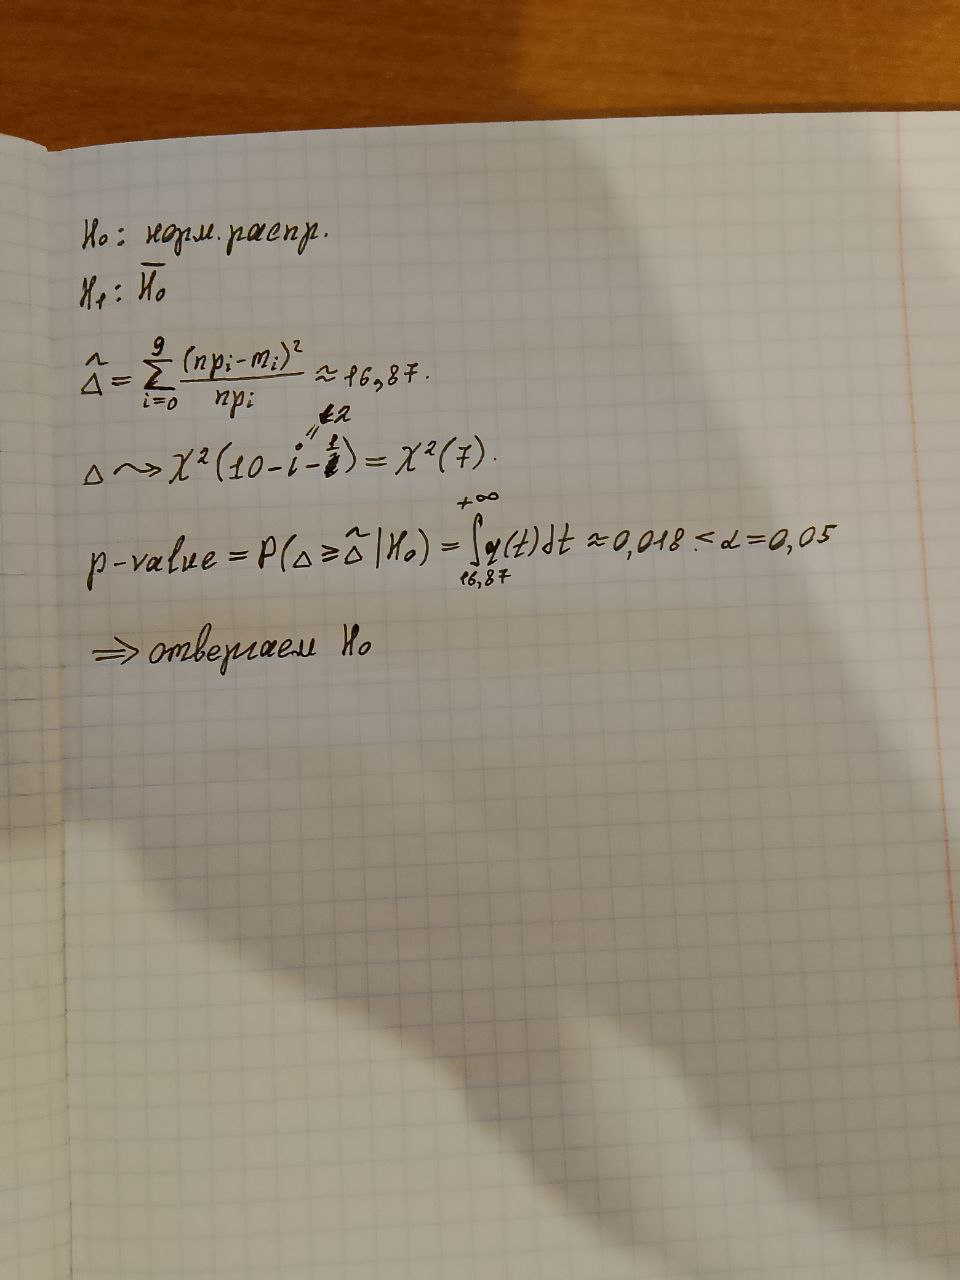 H₀: норм. распр.
H₁: H̅₀
Δ̂ = ∑_{i=0}^{9} (npᵢ-mᵢ)²/npᵢ ≈ 16,87.
Δ ⇝ χ²(10-i-1) = χ²(7).
p-value = P(Δ ≥ Δ̂ | H₀) = ∫_{16,87}^{+∞} q(t)dt ≈ 0,018 < α = 0,05
⟹ отвергаем H₀